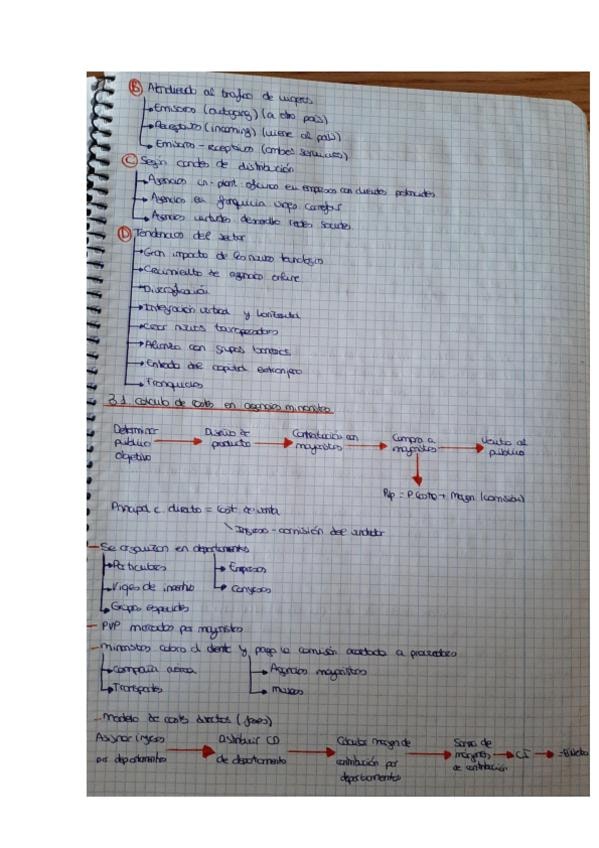 B) Atendiendo al trafico de viajeros
→ Emisoras (outgoing) (a otro país)
→ Receptivos (incoming) (viene al país)
→ Emisoras - receptivas (ambos servicios)
C) Según canales de distribución
→ Agencias in-plant en empresas con clientes potenciales
→ Agencias en franquicia viajes carrefour
→ Agencias virtuales desarrollo redes sociales
D) Tendencias del sector
→ Gran impacto de las nuevas tecnologías
→ Crecimiento de agencias online
→ Diversificación
→ Integración vertical y horizontal
→ Crear nuevos touroperadores
→ Alianza con grupos
→ Entrada de capital extranjero
→ Franquicias
3.1. Calculo de costes en agencias minoristas
Determinar público objetivo → Diseño de producto → Contratación con mayoristas → Compra a mayoristas → Venta al público
Pvp = P.Costo + Margn (comisión)
Principal c. directo = cost. de venta
Ingreso - comisión del vendedor
- Se organizan en departamentos
→ Particulares → Empresas
→ Viajes de incentivo → Congresos
→ Grupos especiales
- PVP marcados por mayoristas
- Minoristas cobra al cliente y paga la comisión a proveedores
→ Compañía aérea → Agencias mayoristas
→ Transportes → museos
- Modelo de costes directos (fases)
Asignar ingresos por departamento → Distribuir CD de departamento → Calcular margen de contribución por departamentos → Suma de márgenes de contribución → CI →